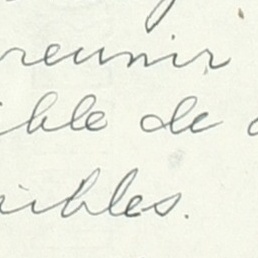 reunir
ible de
ibles.